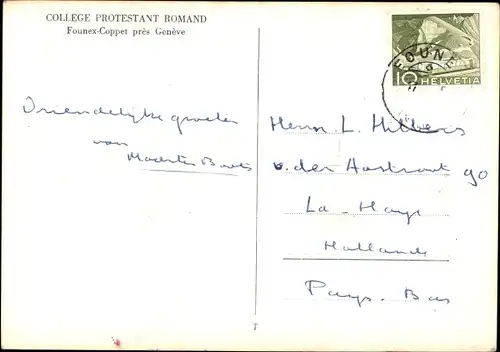 COLLEGE PROTESTANT ROMAND
Founex-Coppet près Genève
FOUNEX
10 HELVETIA
Vriendelijke groeten
van
Maarten
Herrn L. Hilbers
v. der Aastraat 90
La-Haye
Hollande
Pays-Bas
T